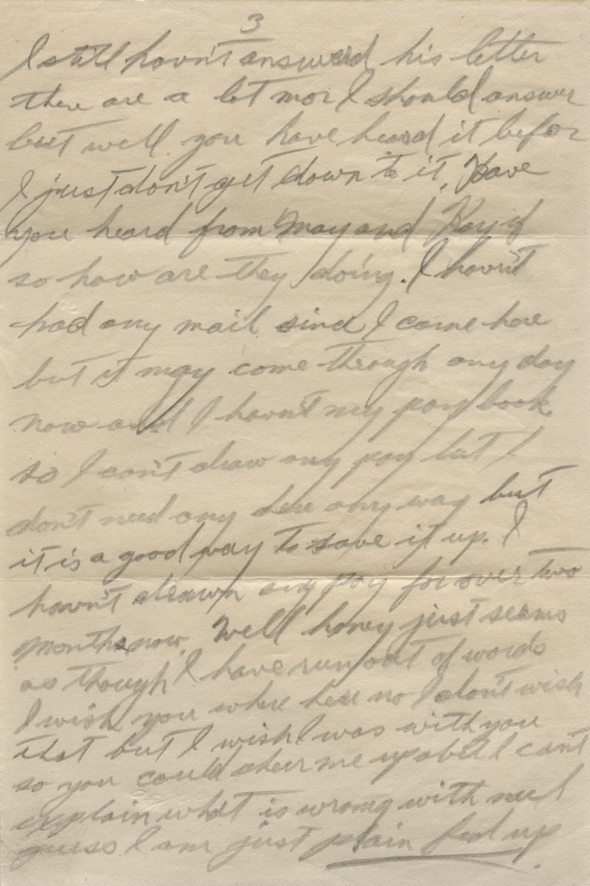 3
I still havn't answered his letter
there are a lot mor I should answer
but well you have heard it befor
I just don't get down to it. Have
you heard from May and Kay if
so how are they doing. I havn't
had any mail since I came here
but it may come through any day
now and I havn't my pay book
so I can't draw any pay but I
don't need any here any way but
it is a good way to save it up. I
havn't drawn any pay for over two
months now. Well honey just seems
as though I have run out of words
I wish you where here no I don't wish
that but I wish I was with you
so you could cheer me up abit I can't
explain what is wrong with me I
guess I am just plain fed up.